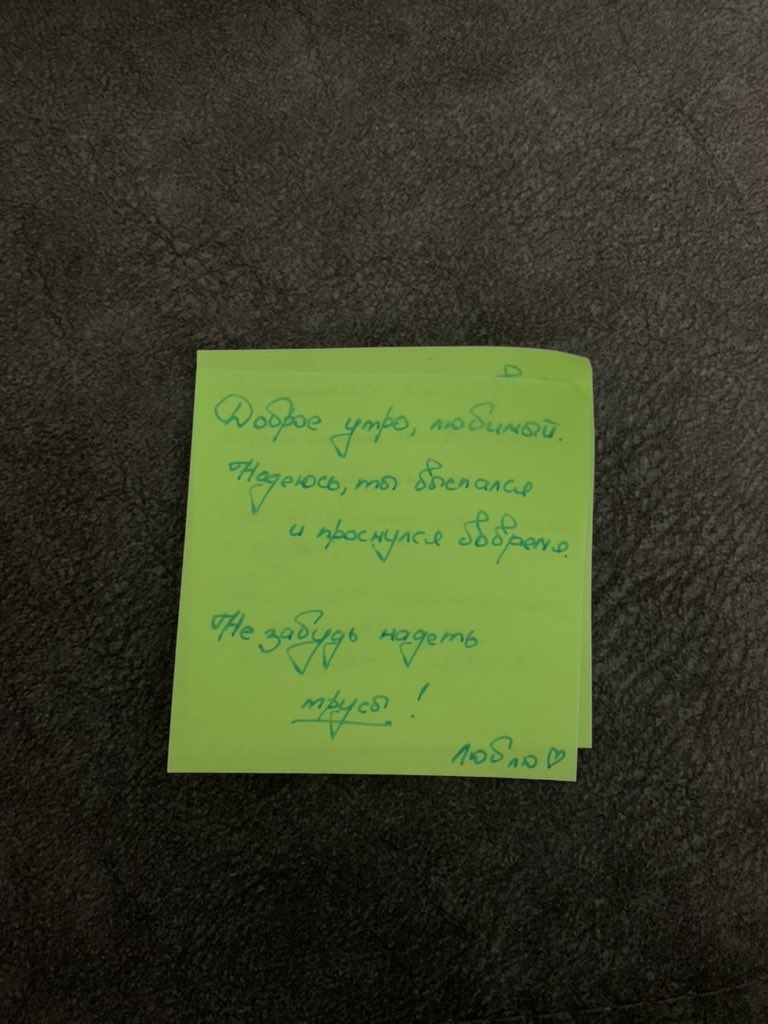 Доброе утро, любимый.
Надеюсь, ты выспался
и проснулся вовремя.
Не забудь надеть
трусы!
Люблю♡